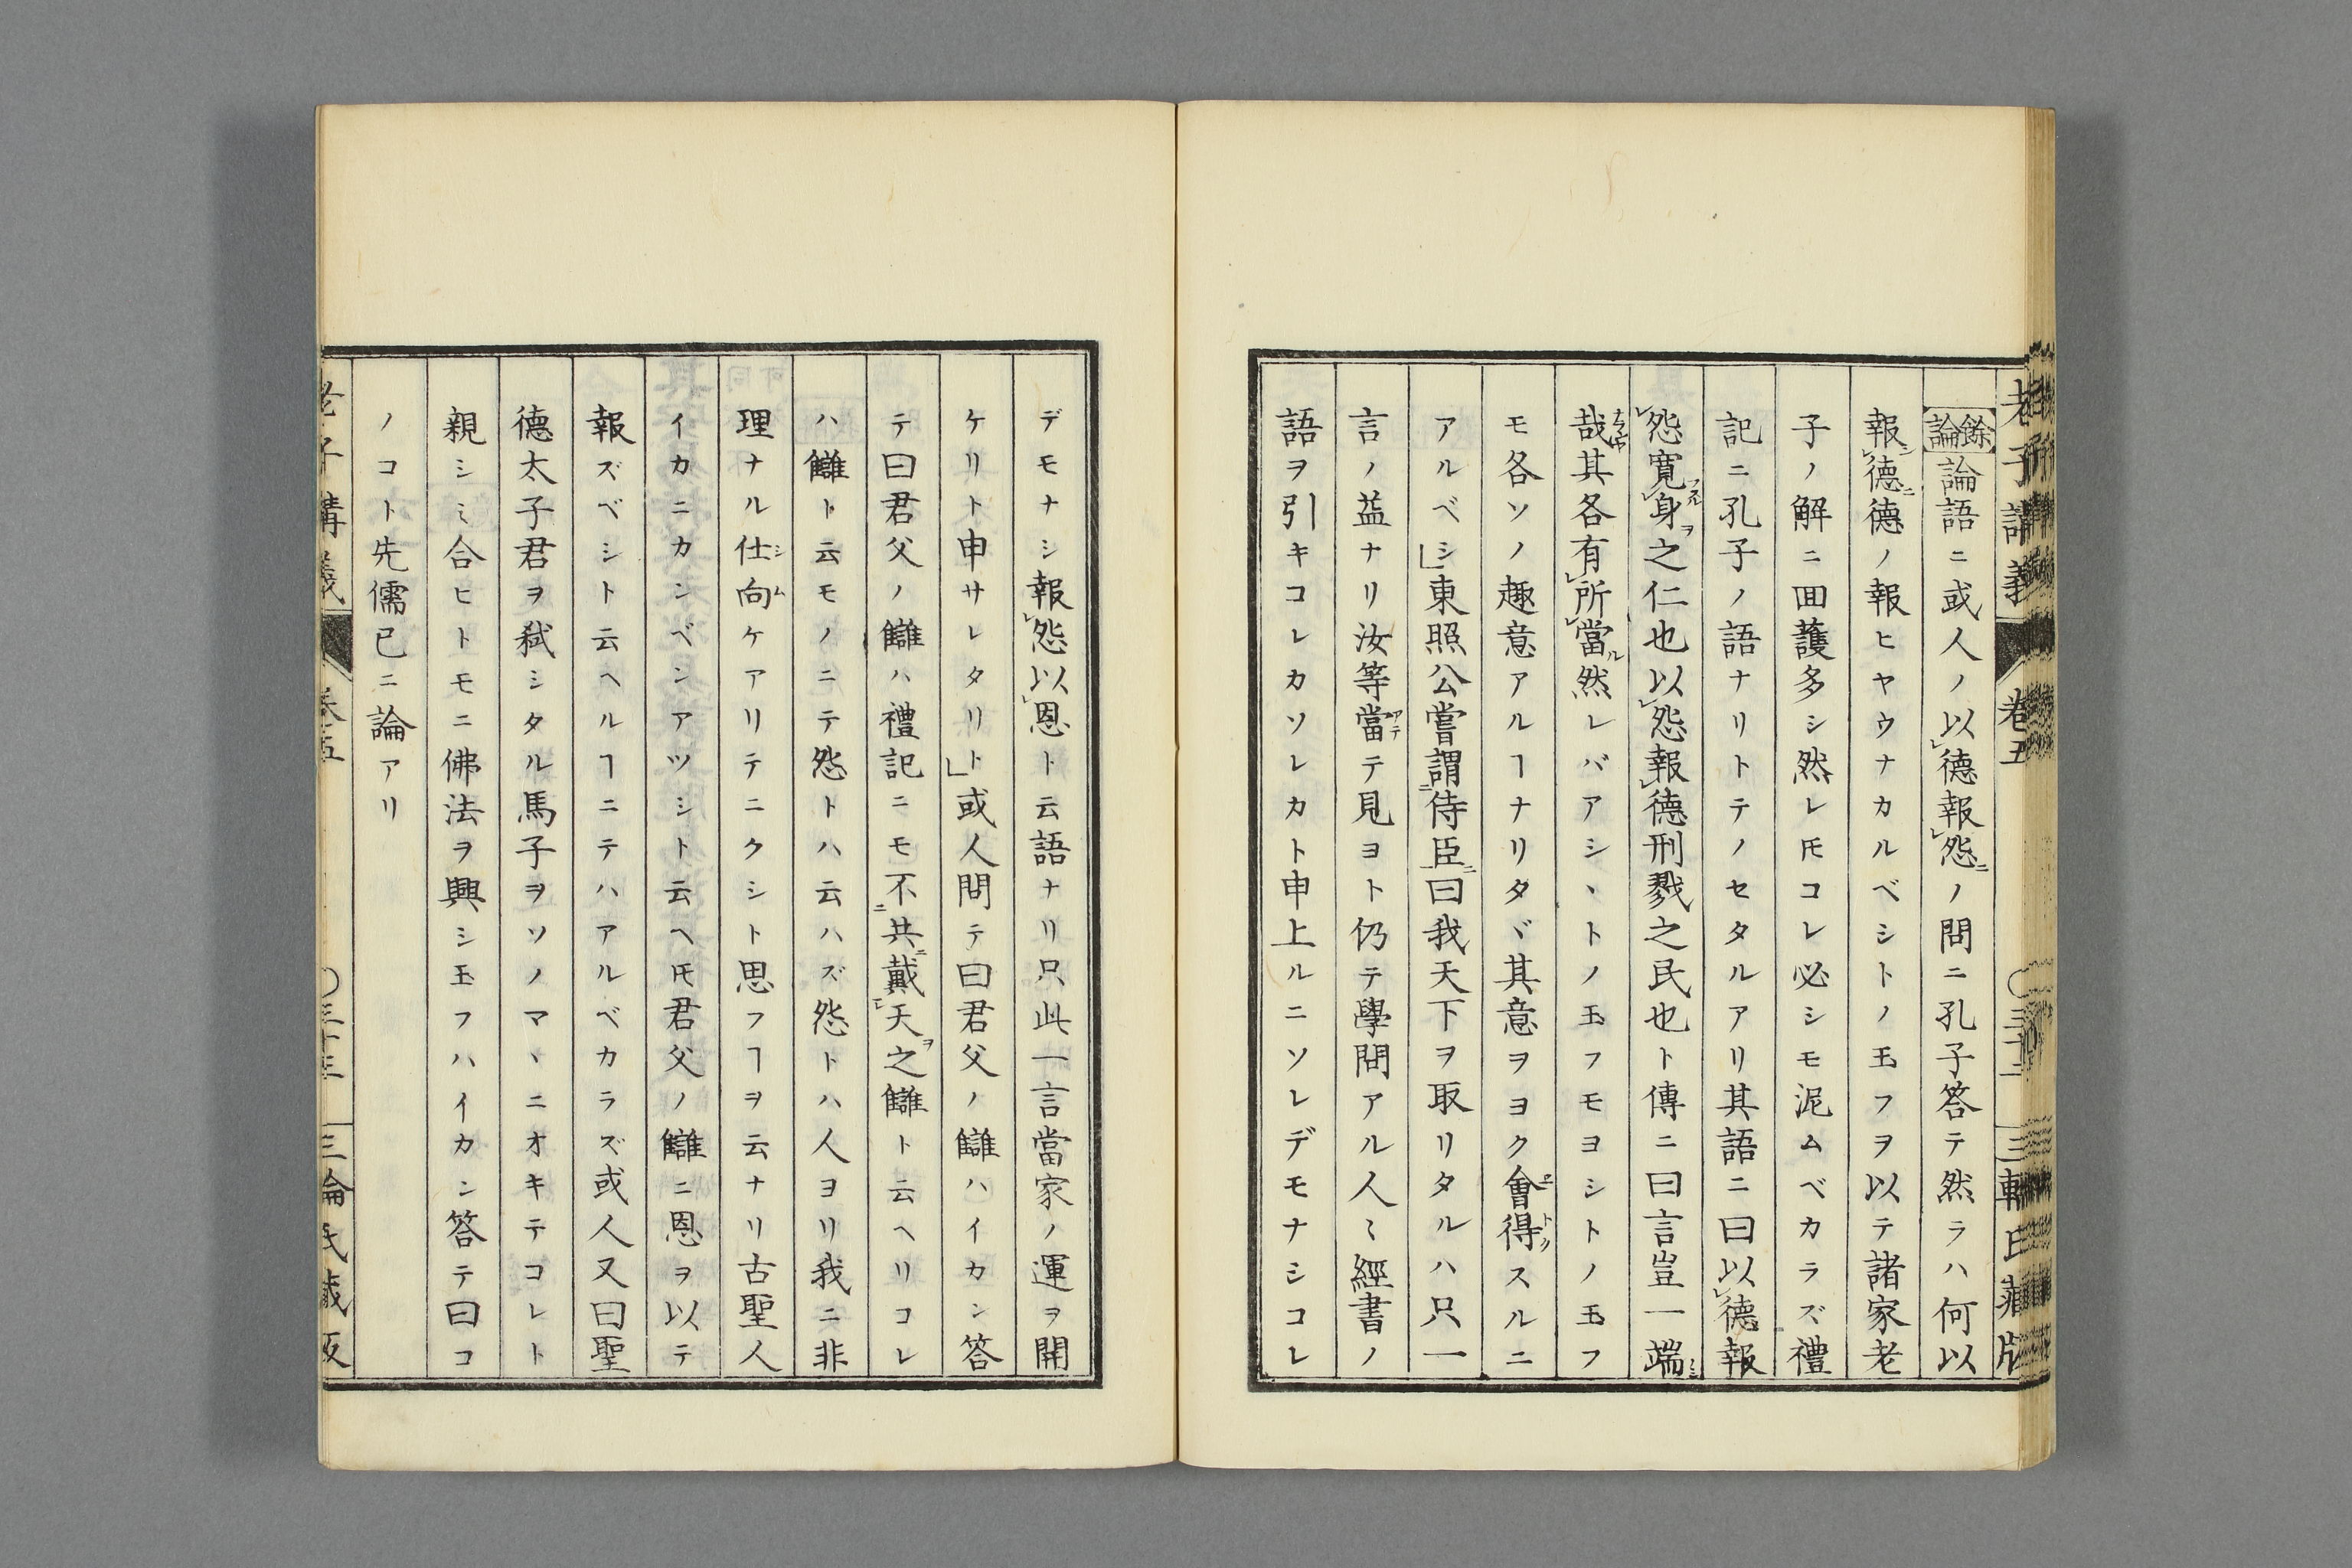 老子講義 卷五 〇三十二 三輪氏藏版
餘論 論語ニ或人ノ以德報怨ノ問ニ孔子答テ然ラハ何以
報德德ノ報ヒヤウナカルベシトノ玉フヲ以テ諸家老
子ノ解ニ回護多シ然レ𪜈コレ必シモ泥ムベカラズ禮
記ニ孔子ノ語ナリトテノセタルアリ其語ニ曰以德報
怨寬身之仁也以怨報德刑戮之民也ト傳ニ曰言豈一端
哉其各有所當然レバアシヽトノ玉フモヨシトノ玉フ
モ各ソノ趣意アルヿナリタヾ其意ヲヨク會得スルニ
アルベシ」東照公嘗謂侍臣曰我天下ヲ取リタルハ只一
言ノ益ナリ汝等當テ見ヨト仍テ學問アル人〻經書ノ
語ヲ引キコレカソレカト申上ルニソレデモナシコレ
デモナシ報怨以恩ト云語ナリ只此一言當家ノ運ヲ開
ケリト申サレタリト」或人問テ曰君父ノ讎ハイカン答
テ曰君父ノ讎ハ禮記ニモ不共戴天之讎ト云ヘリコレ
ハ讎ト云モノニテ怨トハ云ハズ怨トハ人ヨリ我ニ非
理ナル仕向ケアリテニクシト思フヿヲ云ナリ古聖人
イカニカンベンアツシト云ヘ𪜈君父ノ讎ニ恩ヲ以テ
報ズベシト云ヘルヿニテハアルベカラズ或人又曰聖
德太子君ヲ弑シタル馬子ヲソノマヽニオキテコレト
親シミ合ヒトモニ佛法ヲ興シ玉フハイカン答テ曰コ
ノコト先儒已ニ論アリ
老子講義 卷五 〇三十三 三輪氏藏版